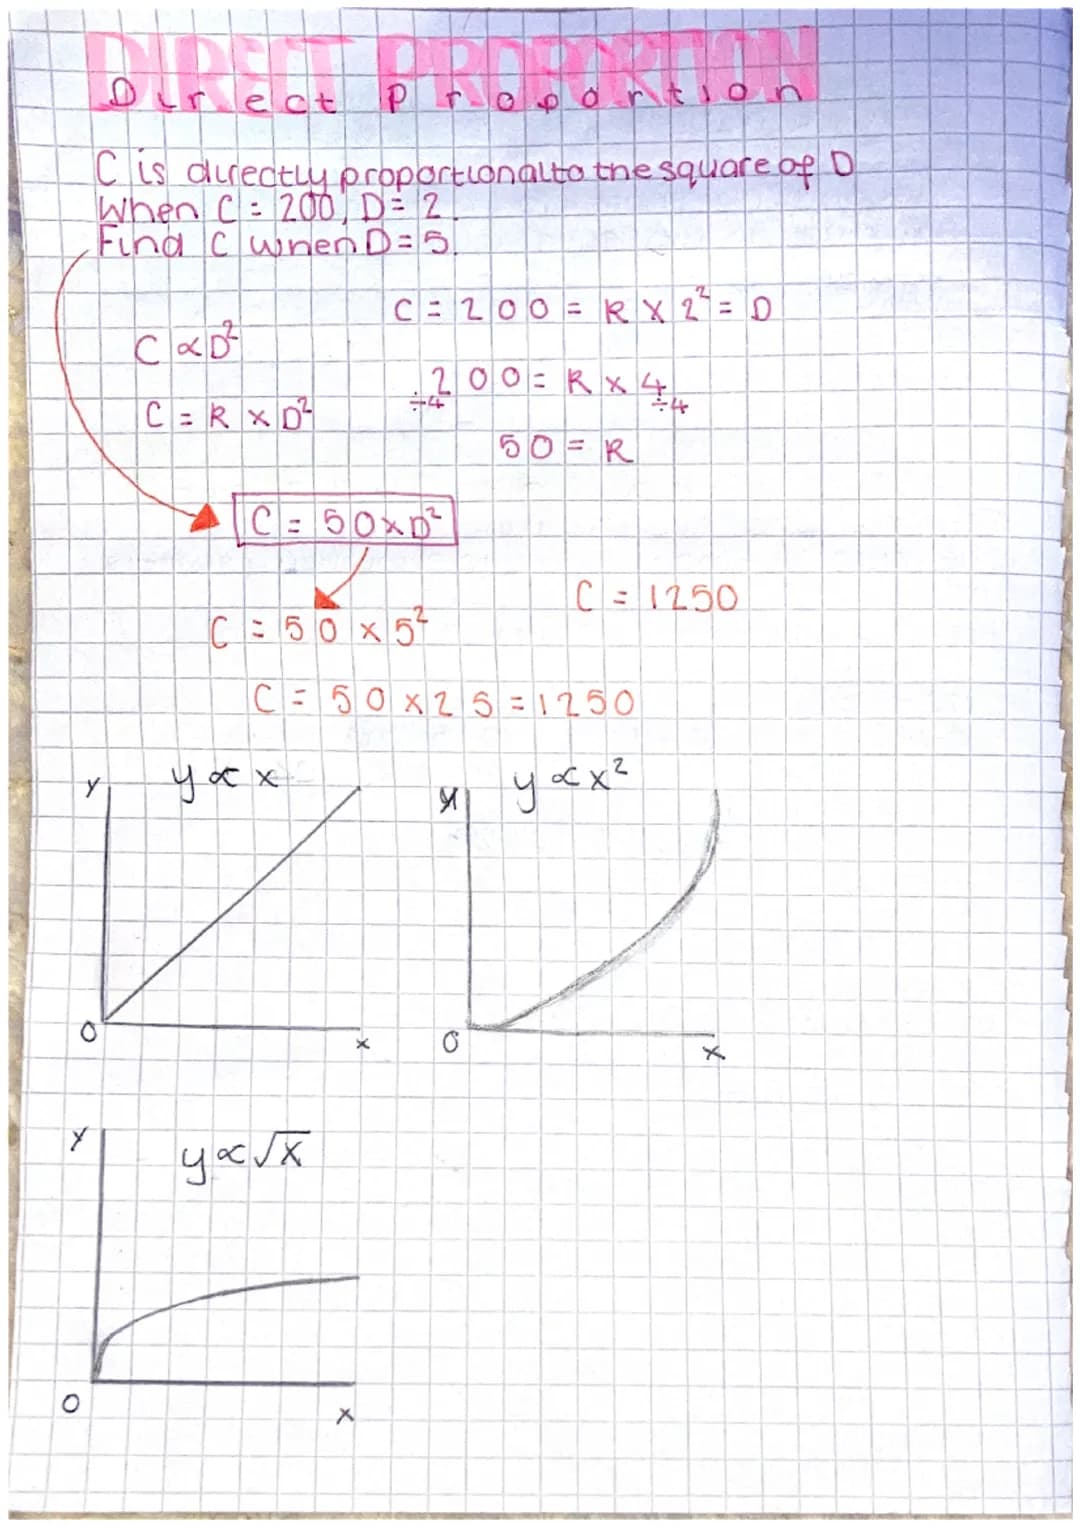 DIRECT PROPORTION
Direct Proportion
C is directly proportional to the square of D
When C = 200, D = 2.
Find C when D = 5.
C = 200 = R × 2² = D
C ∝ D²
200 = R × 4
÷4 ÷4
C = R × D²
50 = R
C = 50 × D²
C = 1250
C = 50 × 5²
C = 50 × 25 = 1250
y y ∝ x
y y ∝ x²
0 x
0 x
y y ∝ √x
0 x